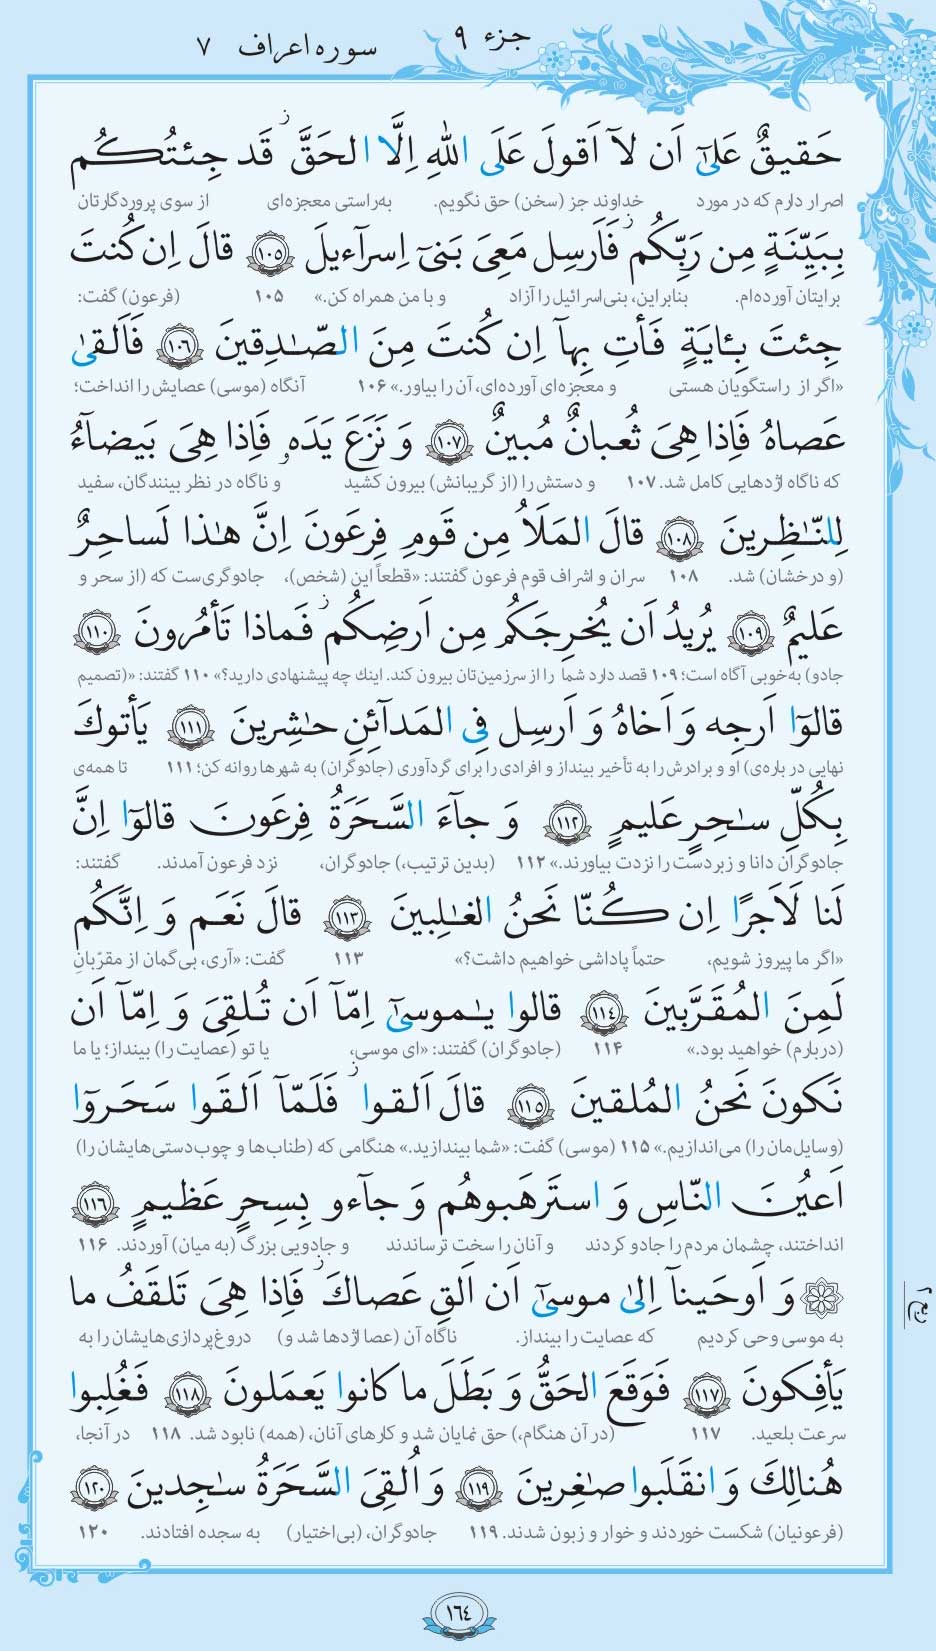 جزء ۹ سوره اعراف ۷
حَقیقٌ عَلىٰٓ اَن لآ اَقولَ عَلَى اللهِ اِلَّا الحَقَّ ۚ قَد جِئتُكُم
اصرار دارم که در مورد خداوند جز (سخن) حق نگویم. به‌راستی معجزه‌ای از سوی پروردگارتان
بِبَیِّنَةٍ مِن رَبِّكُم فَاَرسِل مَعِیَ بَنیٓ اِسرآءیلَ ﴿١٠٥﴾ قالَ اِن كُنتَ
برایتان آورده‌ام. بنابراین، بنی‌اسرائیل را آزاد و با من همراه کن.» ۱۰۵ (فرعون) گفت:
جِئتَ بِـٔایَةٍ فَأتِ بِهآ اِن كُنتَ مِنَ الصّـٰدِقینَ ﴿١٠٦﴾ فَاَلقىٰ
«اگر از راستگویان هستی و معجزه‌ای آورده‌ای، آن را بیاور.» ۱۰۶ آنگاه (موسی) عصایش را انداخت؛
عَصاهُ فَاِذا هِیَ ثُعبانٌ مُبینٌ ﴿١٠٧﴾ وَ نَزَعَ یَدَه‌و فَاِذا هِیَ بَیضآءُ
که ناگاه اژدهایی کامل شد. ۱۰۷ و دستش را (از گریبانش) بیرون کشید و ناگاه در نظر بینندگان، سفید
لِلنّـٰظِرینَ ﴿١٠٨﴾ قالَ المَلَاُ مِن قَومِ فِرعَونَ اِنَّ هـٰذا لَساحِرٌ
(و درخشان) شد. ۱۰۸ سران و اشراف قوم فرعون گفتند: «قطعاً این (شخص)، جادوگری‌ست که (از سحر و
عَلیمٌ ﴿١٠٩﴾ یُریدُ اَن یُخرِجَكُم مِن اَرضِكُم فَماذا تَأمُرونَ ﴿١١٠﴾
جادو) به‌خوبی آگاه است؛ ۱۰۹ قصد دارد شما را از سرزمین‌تان بیرون کند. اینك چه پیشنهادی دارید؟» ۱۱۰ گفتند: «(تصمیم
قالوٓا اَرجِه وَ اَخاهُ وَ اَرسِل فِی المَدآئِنِ حـٰشِرینَ ﴿١١١﴾ یَأتوكَ
نهایی در باره‌ی) او و برادرش را به تأخیر بینداز و افرادی را برای گردآوری (جادوگران) به شهرها روانه کن؛ ۱۱۱ تا همه‌ی
بِكُلِّ سـٰحِرٍ عَلیمٍ ﴿١١٢﴾ وَ جآءَ السَّحَرَةُ فِرعَونَ قالوٓا اِنَّ
جادوگران دانا و زبردست را نزدت بیاورند.» ۱۱۲ (بدین ترتیب،) جادوگران، نزد فرعون آمدند. گفتند:
لَنا لَاَجرًا اِن كُنّا نَحنُ الغـٰلِبینَ ﴿١١٣﴾ قالَ نَعَم وَ اِنَّكُم
«اگر ما پیروز شویم، حتماً پاداشی خواهیم داشت؟» ۱۱۳ گفت: «آری، بی‌گمان از مقرّبانِ
لَمِنَ المُقَرَّبینَ ﴿١١٤﴾ قالوا یـٰموسىٰٓ اِمّآ اَن تُلقِیَ وَ اِمّآ اَن
(دربارم) خواهید بود.» ۱۱۴ (جادوگران) گفتند: «ای موسی، یا تو (عصایت را) بینداز؛ یا ما
نَكونَ نَحنُ المُلقینَ ﴿١١٥﴾ قالَ اَلقوا ۖ فَلَمّآ اَلقَوا سَحَروٓا
(وسایل‌مان را) می‌اندازیم.» ۱۱۵ (موسی) گفت: «شما بیندازید.» هنگامی که (طناب‌ها و چوب‌دستی‌هایشان را)
اَعیُنَ النّاسِ وَ استَرهَبوهُم وَ جآءو بِسِحرٍ عَظیمٍ ﴿١١٦﴾
انداختند، چشمان مردم را جادو کردند و آنان را سخت ترساندند و جادویی بزرگ (به میان) آوردند. ۱۱۶
وَ اَوحَینآ اِلىٰ موسىٰٓ اَن اَلقِ عَصاكَ فَاِذا هِیَ تَلقَفُ ما
به موسی وحی کردیم که عصایت را بینداز. ناگاه آن (عصا اژدها شد و) دروغ‌پردازی‌هایشان را به
یَأفِكونَ ﴿١١٧﴾ فَوَقَعَ الحَقُّ وَ بَطَلَ ما كانوا یَعمَلونَ ﴿١١٨﴾ فَغُلِبوا
سرعت بلعید. ۱۱۷ (در آن هنگام،) حق نمایان شد و کارهای آنان، (همه) نابود شد. ۱۱۸ در آنجا،
هُنالِكَ وَ انقَلَبوا صـٰغِرینَ ﴿١١٩﴾ وَ اُلقِیَ السَّحَرَةُ سـٰجِدینَ ﴿١٢٠﴾
(فرعونیان) شکست خوردند و خوار و زبون شدند. ۱۱۹ جادوگران، (بی‌اختیار) به سجده افتادند. ۱۲۰
١٦٤